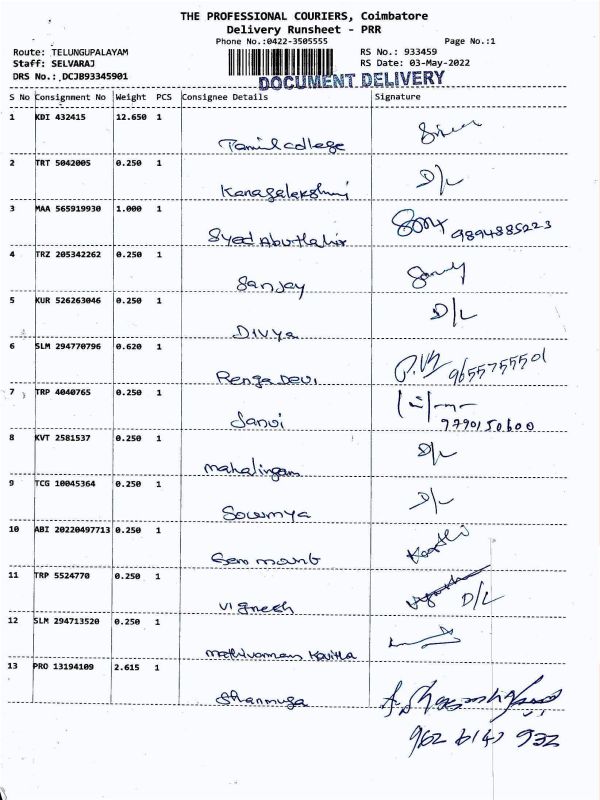 THE PROFESSIONAL COURIERS, Coimbatore
Delivery Runsheet - PRR
Phone No.:0422-3505555 Page No.:1
Route: TELUNGUPALAYAM RS No.: 933459
Staff: SELVARAJ RS Date: 03-May-2022
DRS No.: DCJB93345901
DOCUMENT DELIVERY
S No Consignment No Weight PCS Consignee Details Signature
1 KDI 432415 12.650 1
Tamil college
2 TRT 5042005 0.250 1
Kanagalakshmi D/L
3 MAA 565919930 1.000 1
Syed Abuthahir 9894885223
4 TRZ 205342262 0.250 1
Sanjay
5 KUR 526263046 0.250 1
Divya D/L
6 SLM 294770796 0.620 1
Renga Devi 9655755501
7 TRP 4040765 0.250 1
Janvi 9790150600
8 KVT 2581537 0.250 1
Mahalingam D/L
9 TCG 10045364 0.250 1
Sowmya D/L
10 ABI 20220497713 0.250 1
11 TRP 5524770 0.250 1
Vignesh D/L
12 SLM 294713520 0.250 1
Kavitha
13 PRO 13194109 2.615 1
Shanmuga